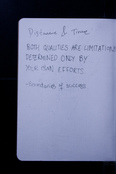 Distance & Time
BOTH QUALITIES ARE LIMITATIONS
DETERMINED ONLY BY
YOUR OWN EFFORTS
of success